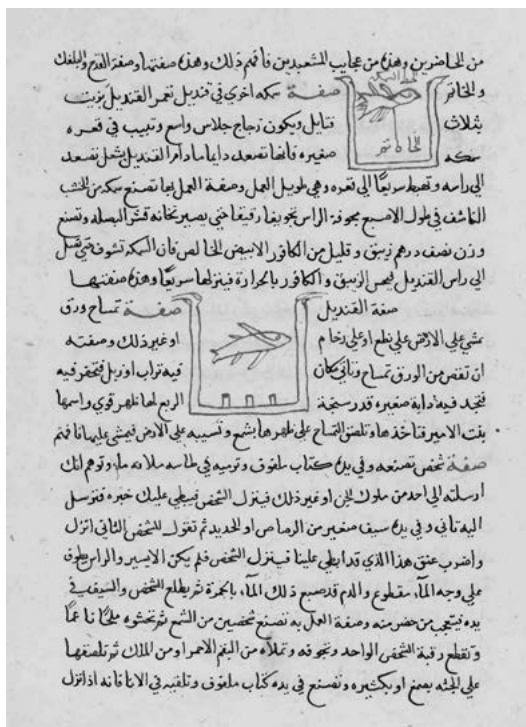 من الحاضرين وهذا من عجايب المشعبدين فافهم ذلك وهذه صفتها وصفة القدح والبلغك
والخاتر صفة سمكه اخرى في قنديل تغمر القنديل بزيت
بثلاث فتايل ويكون زجاج جلاس واسع وتبيب في قعره
سمكه صغيره فانها تصعد دايما مادام القنديل يشعل تصعد
الى راسه وتهبط سريعًا الى قعره وهي طويل العمل وصفة العمل بها تصنع سمكه من الخشب
الناشف في طول الاصبع مجوفة الراس تجويفا رقيقا حتى يصير تخانه قشر البصله وتصنع
وزن نصف درهم زيبق وقليل من الكافور الابيض الخالص فان السمكه تشوف حتى تصل
الى راس القنديل فيحس الزيبق والكافور بالحرارة فينزلها سريعًا وهذه صفتها
صفة القنديل صفة تمساح ورق
يمشي على الارض على نطع او على رخام او غير ذلك وصفته
ان تقص من الورق تمساح وتأتي مكان فيه تراب او زبل فتحفر فيه
فتجد فيه دابة صغيره قدر سنجة الربع لها ظهر قوي واسمها
بنت الامير فتاخذها وتلصق التمساح على ظهرها بشمع وتسيبه على الارض فيمشي عليها فافهم
صفة شخص تصنعه وفي يده كتاب ملفوف وترميه في طاسه ملانه ماء وتوهم انك
ارسلته الى احد من ملوك الجن او غير ذلك فينزل الشخص فيبطي عليك خبره فترسل
اليه تاني وفي يده سيف صغير من الرصاص او الحديد ثم تقول للشخص الثاني انزل
واضرب عنق هذا الذي قد ابطي علينا فينزل الشخص فلم يكن الا يسير والراس يطوف
على وجه الماء مقطوع والدم قد صبغ ذلك الماء بالحمرة ثم يطلع الشخص والسيف في
يده فيتعجب من حضر منه وصفة العمل به تصنع شخصين من الشمع ثم تحشوه ملحًا ناعمًا
وتقطع رقبة الشخص الواحد وتجوفه وتملاه من البقم الاحمر او من الملك ثم تلصقها
على الجثه بصمغ او بكثيره وتصنع في يده كتاب ملفوف وتلقيه في الانا فانه اذا نزل